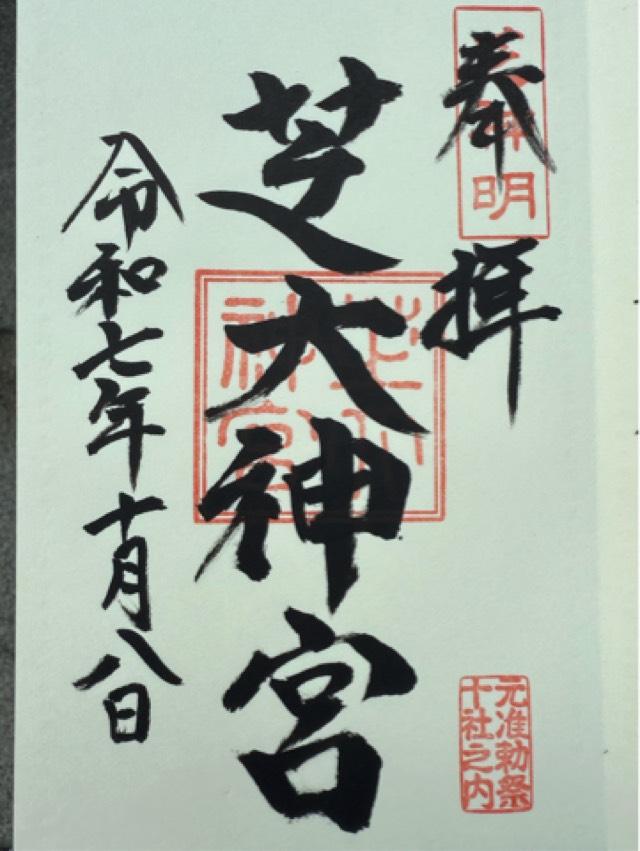 奉拝
芝神明
芝大神宮
芝大
神宮
令和七年十月八日
元准勅祭
十社之内